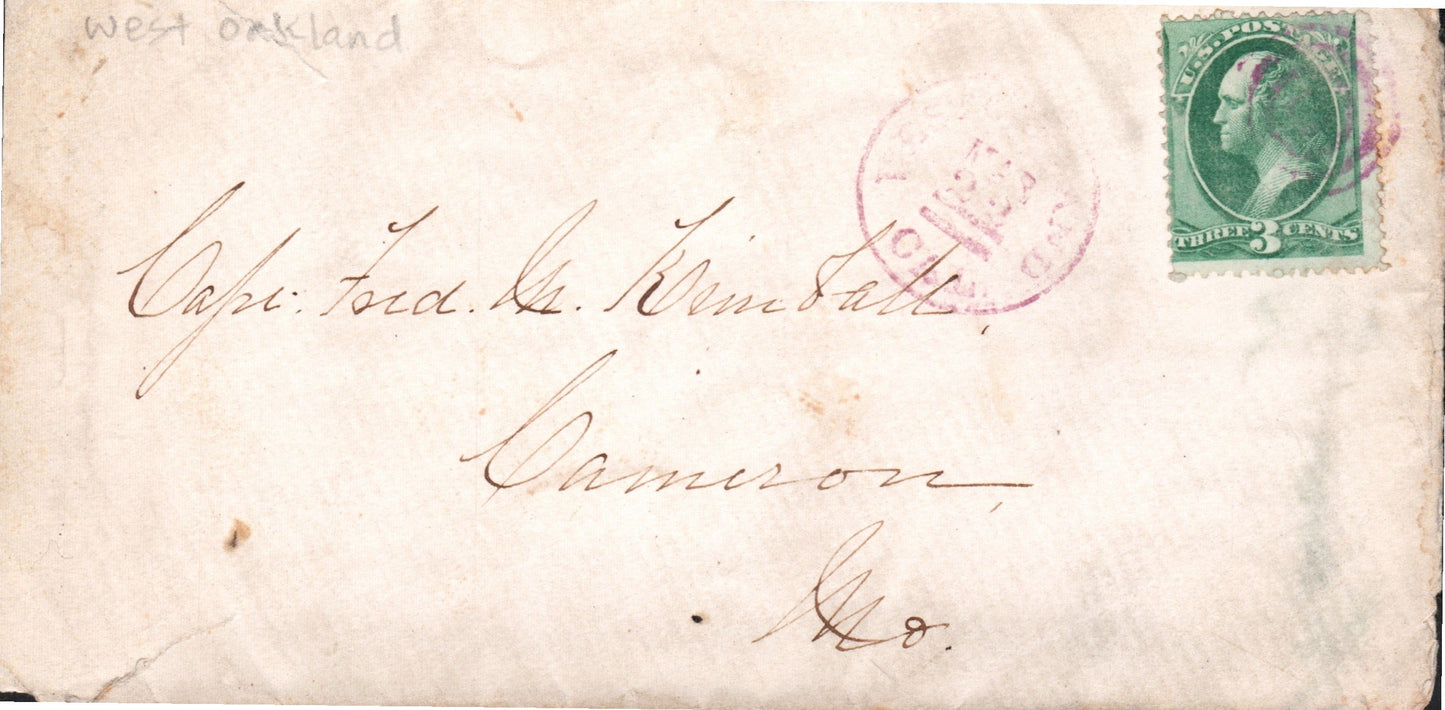 west oakland
U.S. POSTAGE
THREE 3 CENTS
MAR
CAL
Capt. Fred. M. Kimball,
Cameron,
Mo.